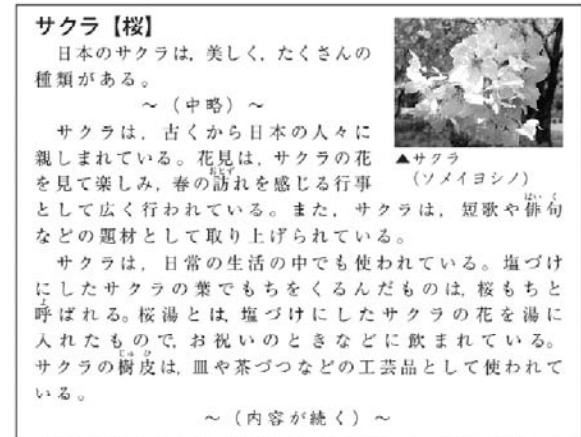 サクラ【桜】
日本のサクラは，美しく，たくさんの
種類がある。
～（中略）～
サクラは，古くから日本の人々に
親しまれている。花見は，サクラの花
を見て楽しみ，春の訪れを感じる行事
として広く行われている。また，サクラは，短歌や俳句
などの題材として取り上げられている。
▲サクラ
（ソメイヨシノ）
サクラは，日常の生活の中でも使われている。塩づけ
にしたサクラの葉でもちをくるんだものは，桜もちと
呼ばれる。桜湯とは，塩づけにしたサクラの花を湯に
入れたもので，お祝いのときなどに飲まれている。
サクラの樹皮は，皿や茶づつなどの工芸品として使われて
いる。
～（内容が続く）～